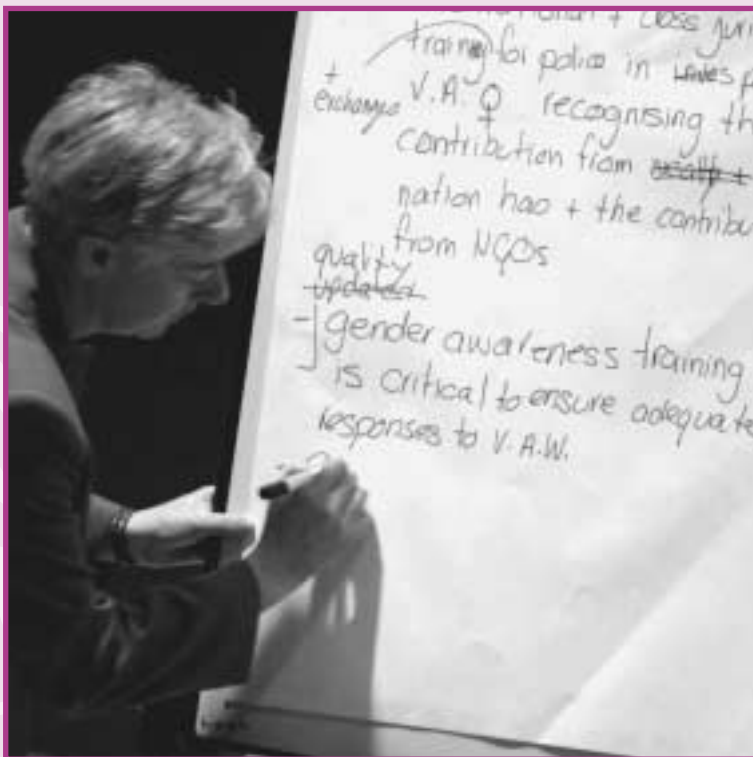 + Cross juri
training for police in
+
exchange V.A.♀ recognising th
contribution from
nation has + the contribu
from NGOs
quality
updated
gender awareness training
is critical to ensure adequate
responses to V.A.W.